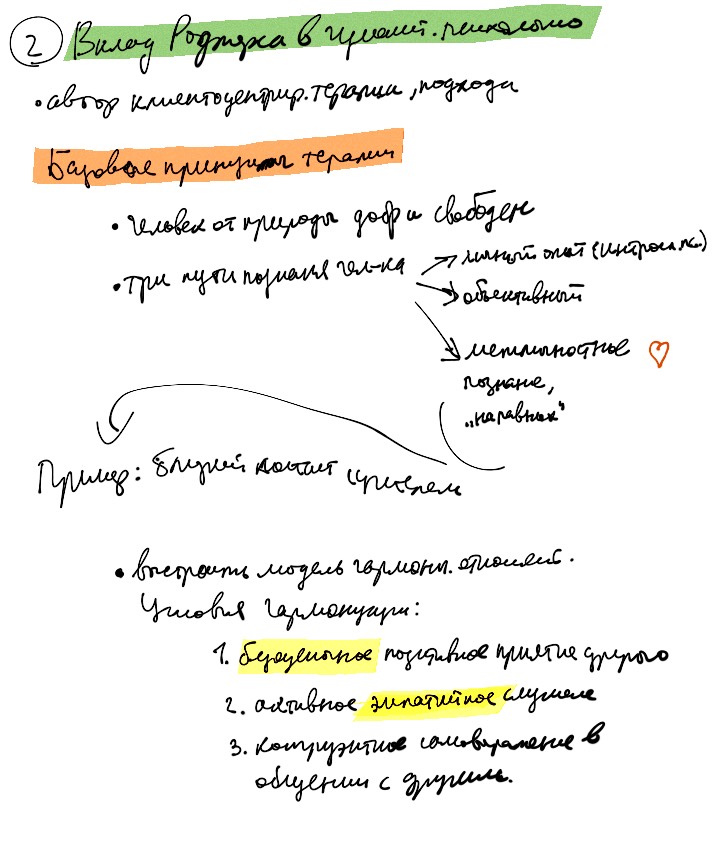 2 Вклад Роджерса в гуманит. психологию
• автор клиентоцентрир. терапии, подхода
Базовые принципы терапии
• человек от природы добр и свободен
• три пути познания чел-ка
личный опыт (интроспек.)
объективный
межличностное
познание,
„наравных"
Пример: близкий контакт с учителем
• выстроить модель гармонич. отношений.
Условия гармонизации:
1. безоценочное позитивное принятие другого
2. активное эмпатийное слушание
3. конгруэнтное самовыражение в
общении с другими.